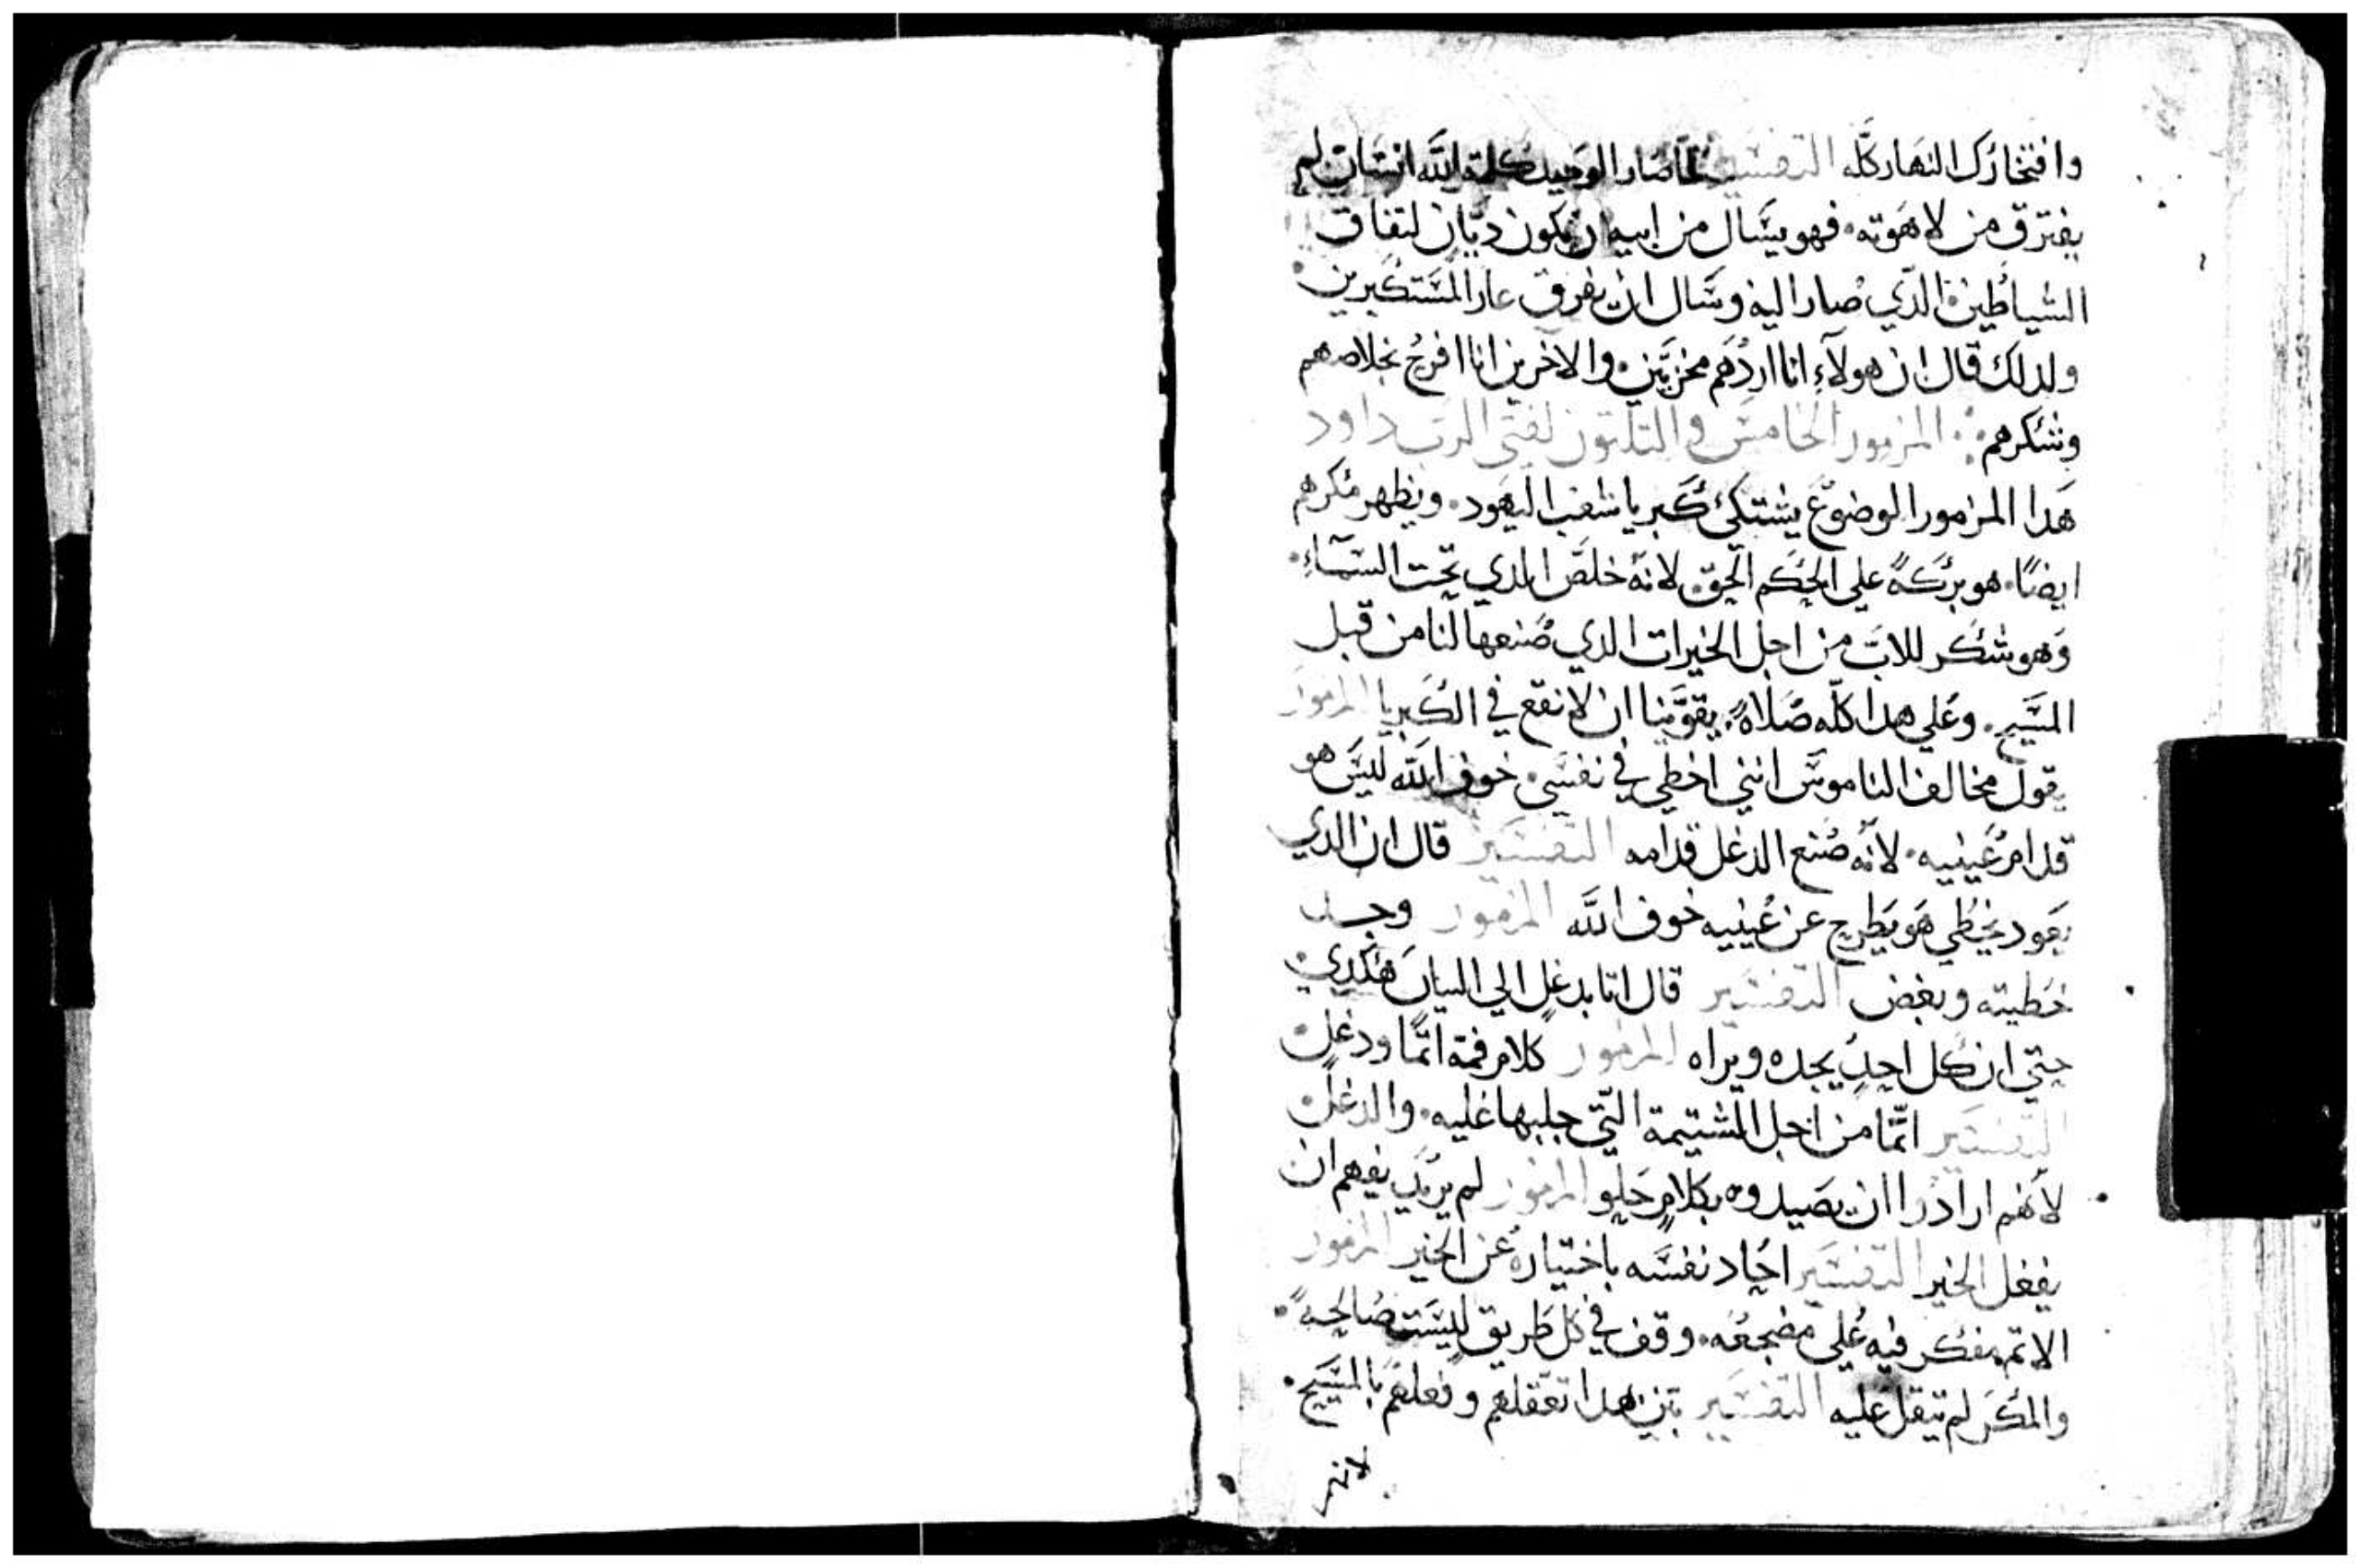 وافتخارك النهار كله التفسير لما صار الوحيد كلمة الله انسان لم
يفترق من لاهوته. فهو يسال من ابيه ان يكون ديان لنفاق
الشياطين الذي صار اليه وسال ان يفرق عار المستكبرين.
ولدلك قال ان هولآء انا اردهم مخزيين. والاخرين انا افرح بخلاصهم
وشكرهم: المزمور الخامس والتلتون لفتى الرب داود
هدا المزمور الوضوع يشتكي كبريا شعب اليهود. ويظهر مكرهم
ايضًا. هو بركةً علي الحكم الحق. لانه خلص الدي تحت السمآءِ.
وهو شكر للاب من اجل الخيرات الدي صنعها لنا من قبل
المسيح. وعلي هدا كله صلاة. يقوينا ان لا نقع في الكبريا المزمور
يقول مخالف الناموس انني اخطي في نفسي. خوف الله ليس هو
قدام عينيه. لانه صنع الدغل قدامه التفسير قال ان الدي
يعود يخطي هو يطرح عن عينيه خوف الله المزمور وجد
خطيته وبغض التفسير قال اتا بدغل الي البيان هكدي
حتي ان كل احدٍ يجده ويراه المزمور كلام فمه اتمًا ودغل.
التفسير اتمًا من اجل الشتيمة التي جلبها عليه. والدغل
لانهم ارادوا ان يصيدوه بكلام حلو المزمور لم يريد يفهم ان
يفعل الخير التفسير احاد نفسه باختياره عن الخير المزمور
الاتم يفكر فيه علي مضجعه. وقف في كل طريق ليست صالحه.
والمكر لم يتقل عليه التفسير بين هدا تعقلهم وفعلهم بالمسيح.
لانهم